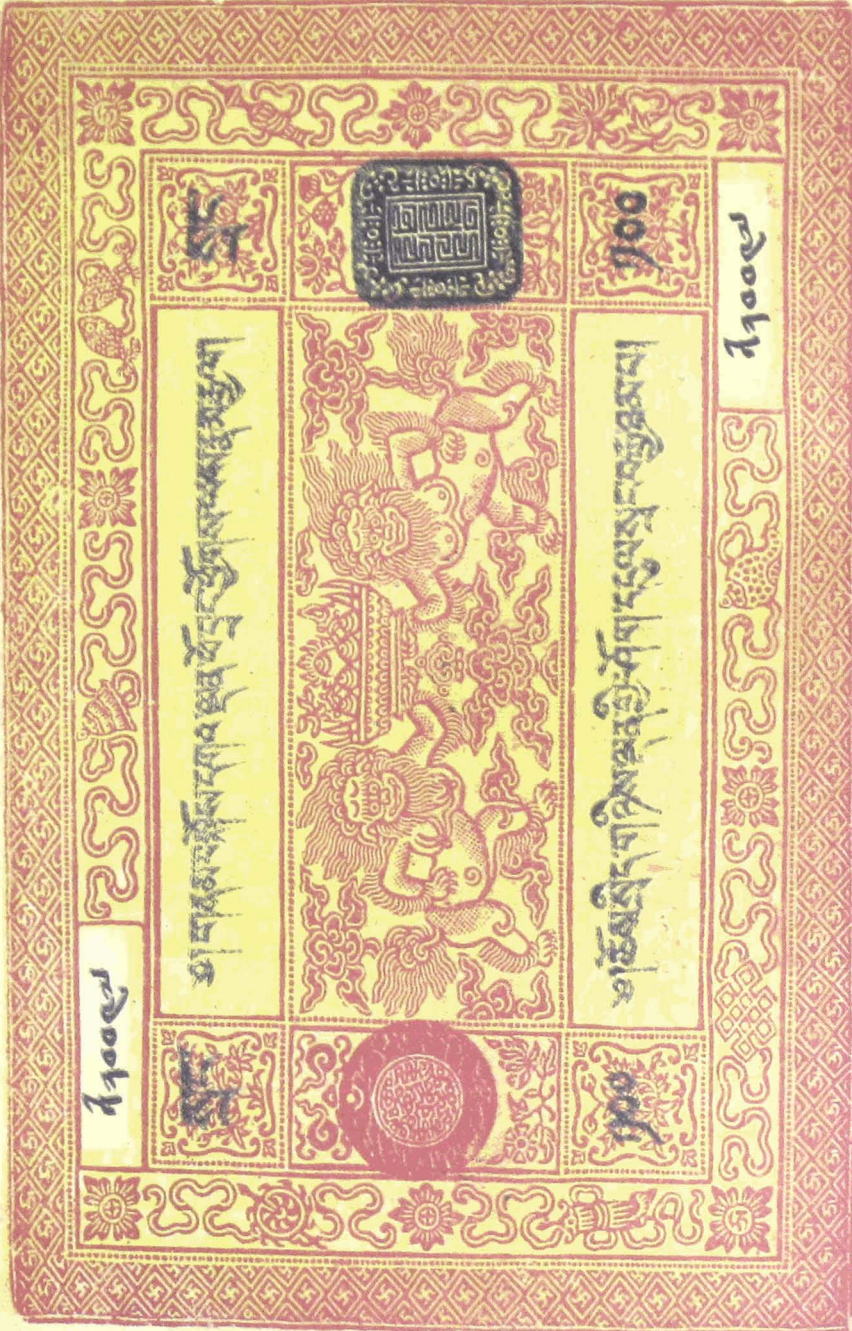 སྲང
༄། །གནམ་བསྐོས་དགའ་ལྡན་ཕོ་བྲང་ཕྱོགས་ལས་རྣམ་རྒྱལ།
སྲང
༡༠༠
༄། །ཆོས་སྲིད་གཉིས་ལྡན་གྱི་ཤོག་དངུལ་སྲང་བརྒྱ་ཐམ་པ།
༡༠༠